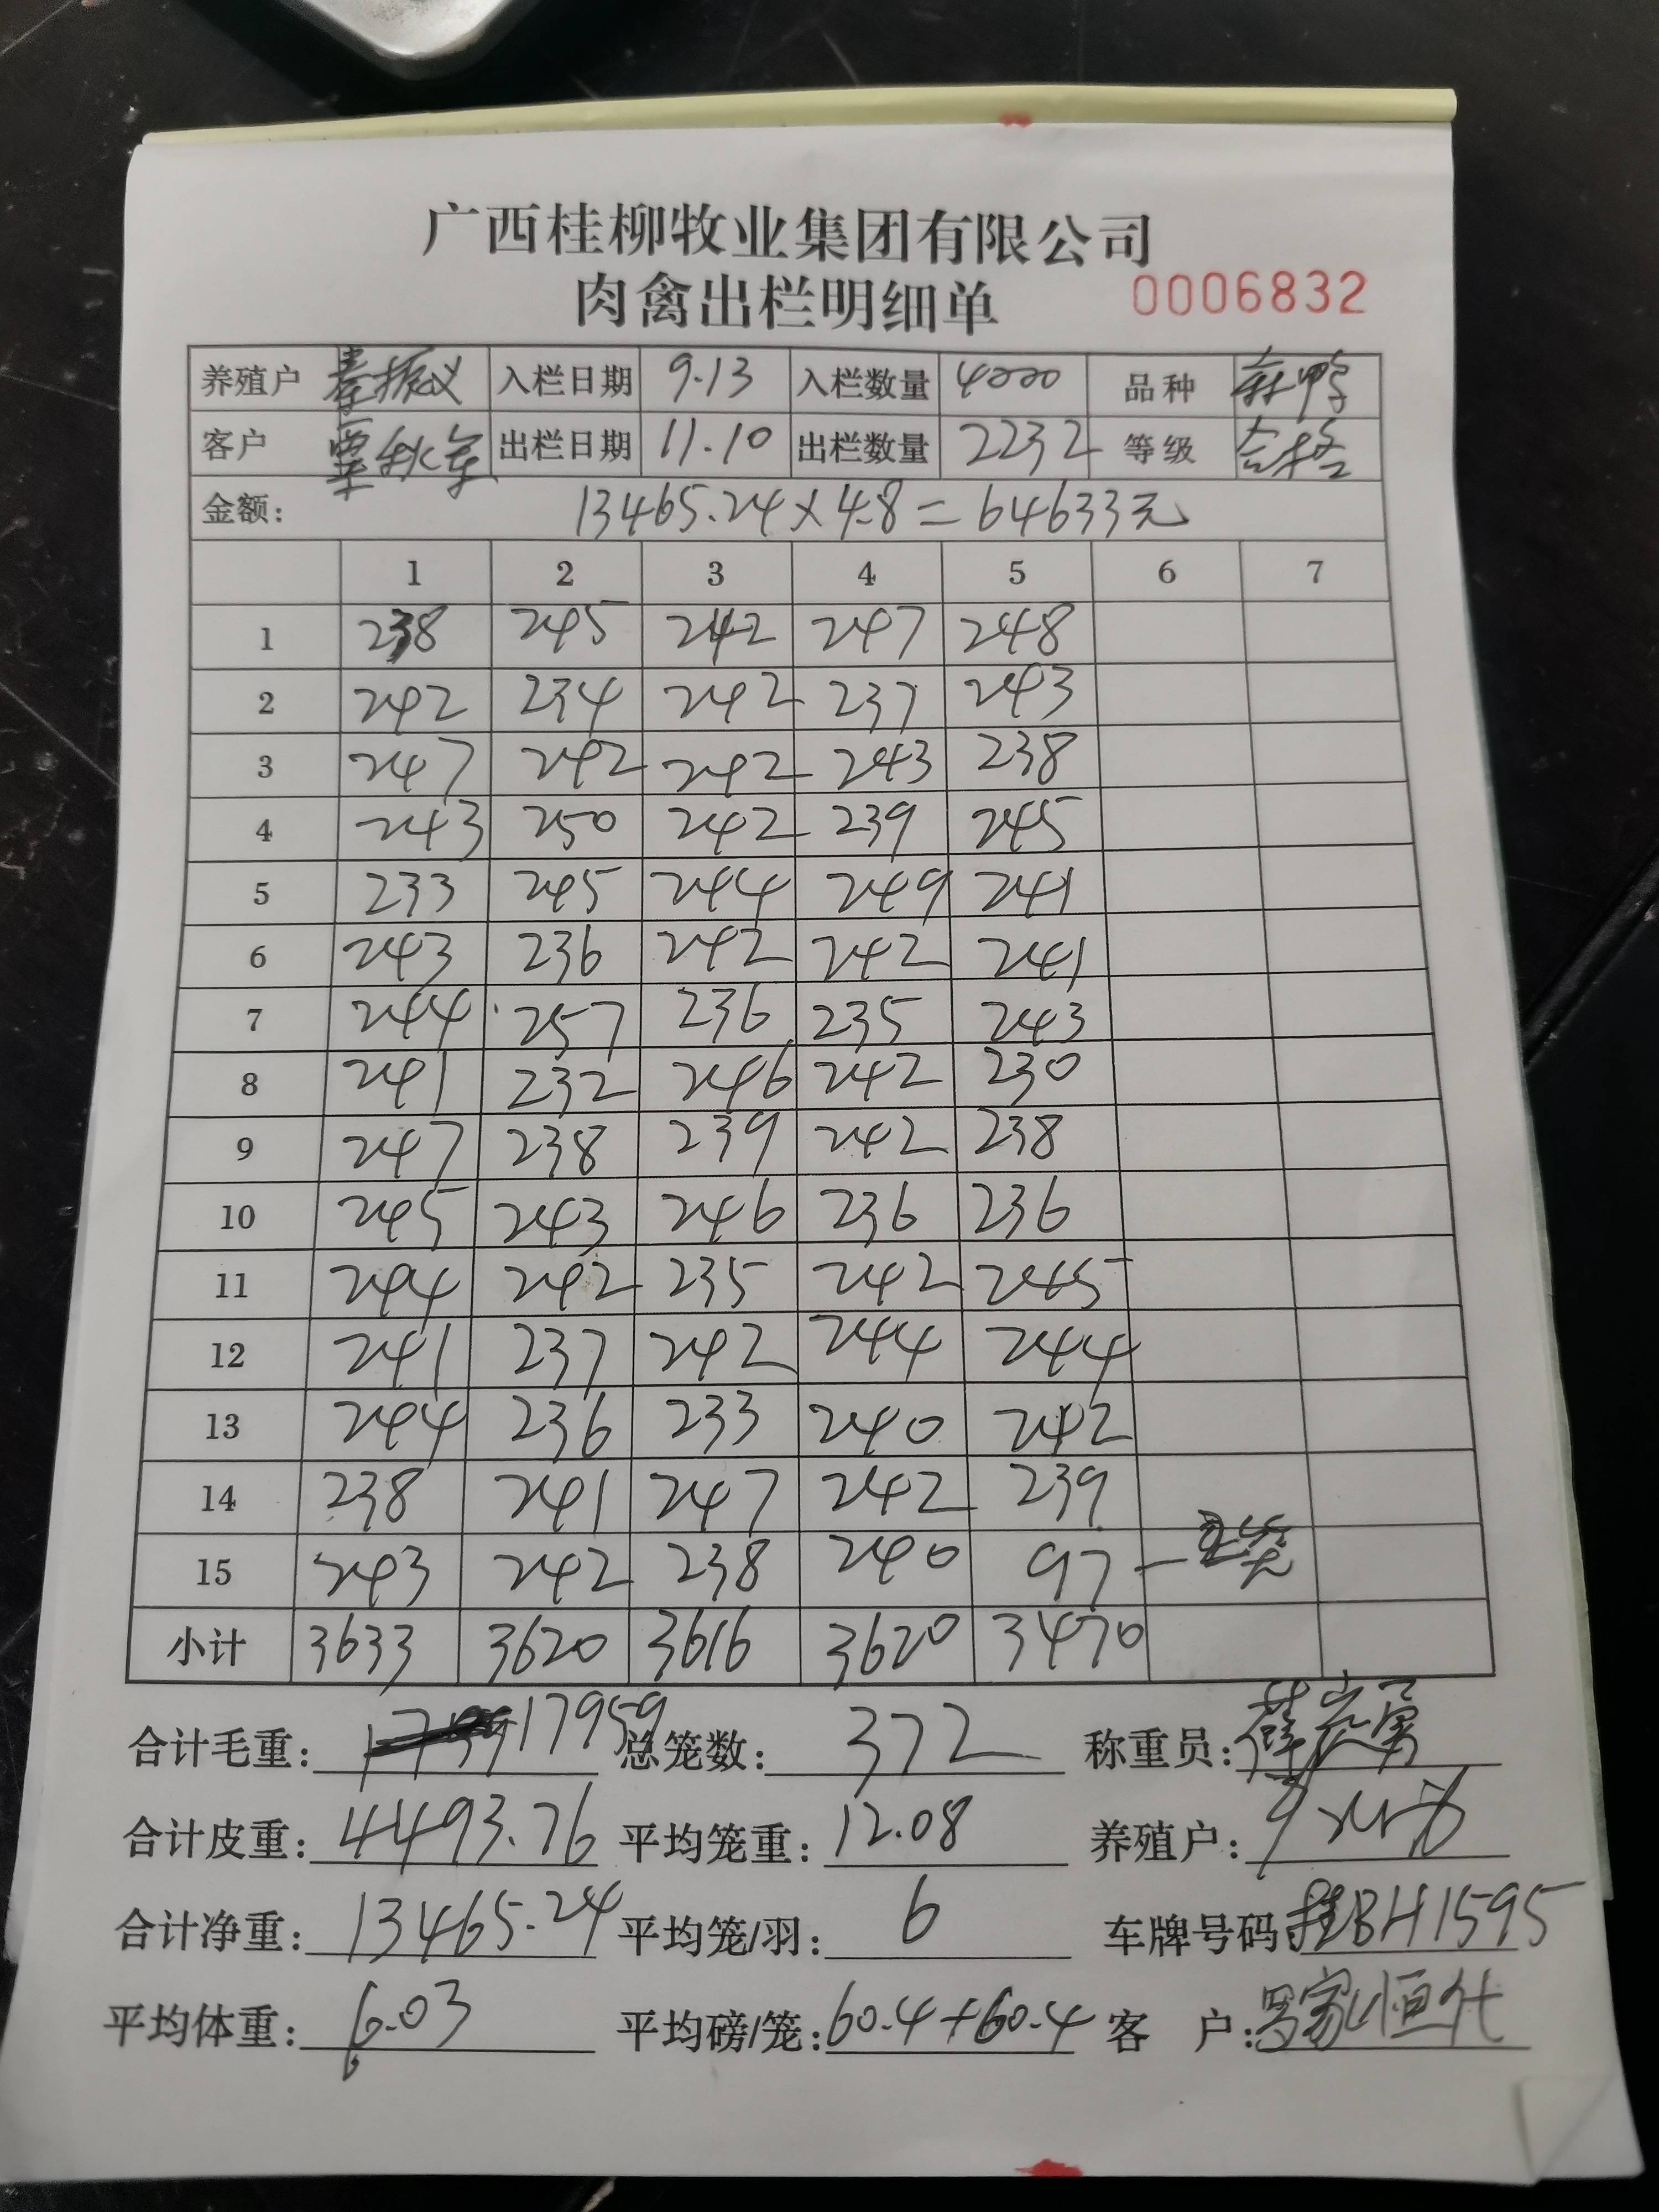 广西桂柳牧业集团有限公司
肉禽出栏明细单 0006832
养殖户 秦振义 入栏日期 9.13 入栏数量 4000 品种 麻鸭
客户 覃秋军 出栏日期 11.10 出栏数量 2232 等级 合格
金额: 13465.24×4.8=64633元
1 2 3 4 5 6 7
1 238 245 242 247 248
2 242 234 242 237 243
3 247 242 242 243 238
4 243 250 242 239 245
5 233 245 244 249 241
6 243 236 242 242 241
7 244 257 236 235 243
8 241 232 246 242 230
9 247 238 239 242 238
10 245 243 246 236 236
11 244 242 235 242 245
12 241 237 242 244 244
13 244 236 233 240 242
14 238 241 247 242 239
15 243 242 238 240 97 — 笼
小计 3633 3620 3616 3620 3470
合计毛重: 17959 总笼数: 372 称重员:
合计皮重: 4493.76 平均笼重: 12.08 养殖户:
合计净重: 13465.24 平均笼/羽: 6 车牌号码: 桂BH1595
平均体重: 6.03 平均磅/笼: 60.4+60.4 客 户: 罗家恒代